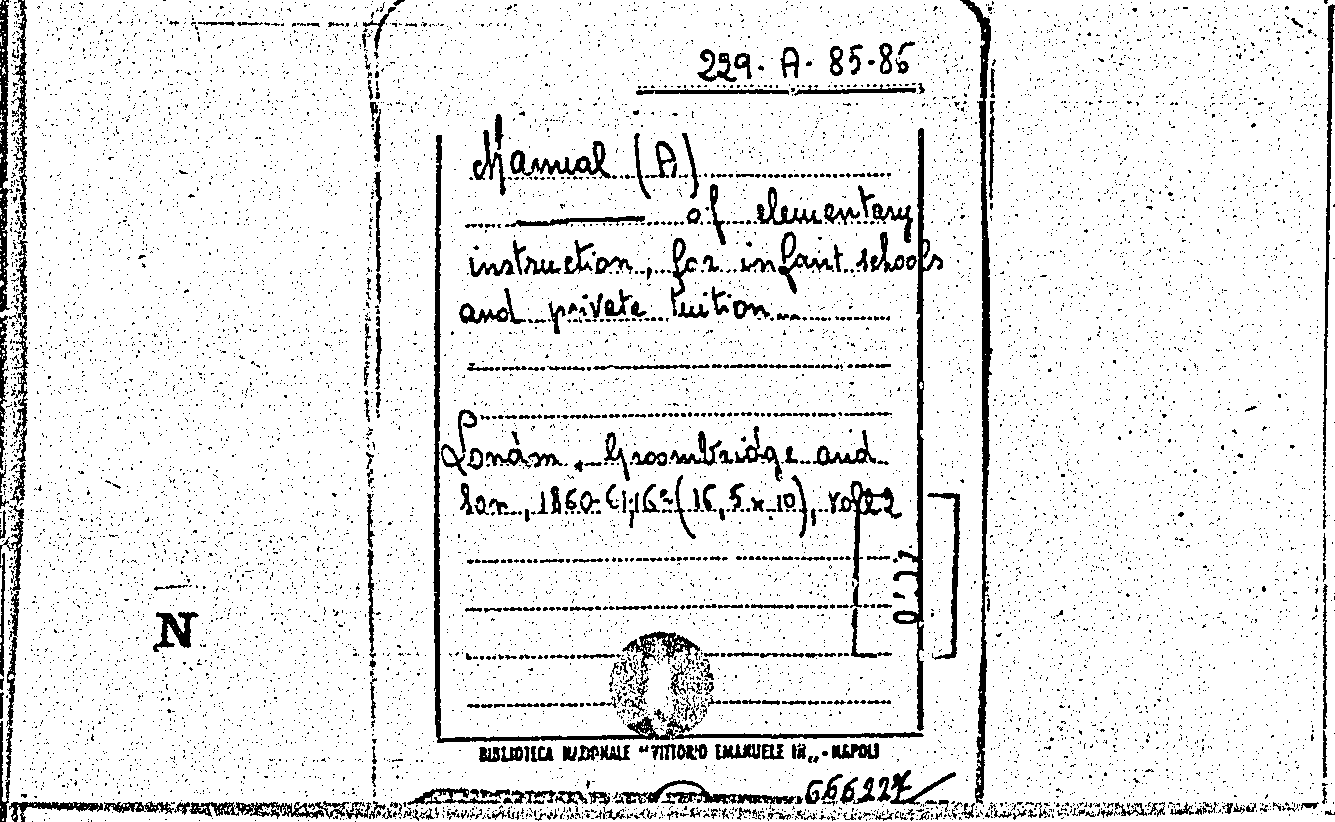 229. A. 85-86
Manual (A)
of elementary
instruction, for infant schools
and private tuition...
London, Groombridge and
Son, 1860-61, 16º (16,5 x 10), vol. 2
N
BIBLIOTECA NAZIONALE "VITTORIO EMANUELE III„ - NAPOLI
666227